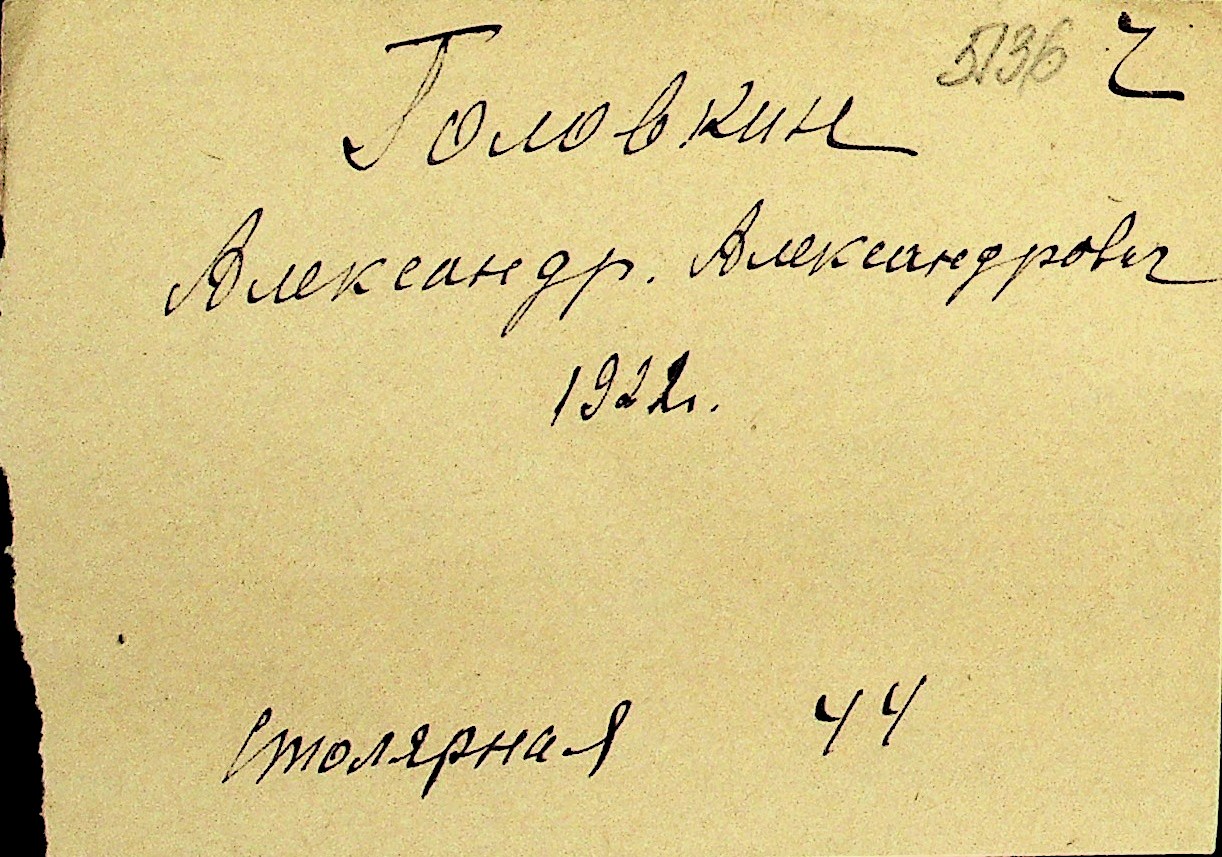 5136 ч
Головкин
Александр. Александрович
1922г.
столярная 44